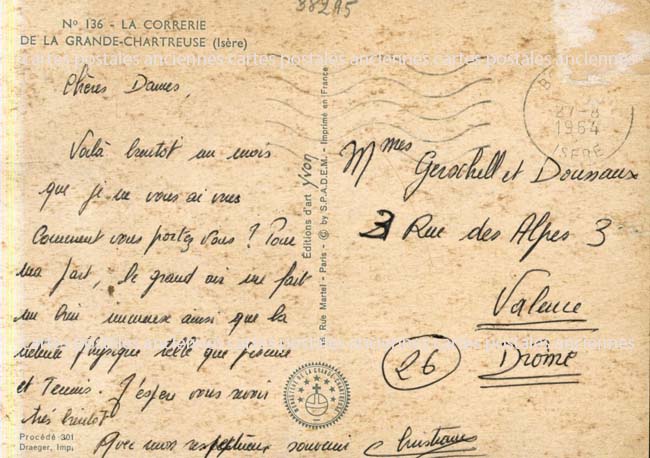 88285
N° 136 - LA CORRERIE
DE LA GRANDE-CHARTREUSE (Isère)
cartes postales anciennes cartes postales anciennes cartes postales anciennes
Chères Dames,
Voilà bientôt un mois
que je ne vous ai vues
Comment vous portez vous ? Pour
ma part, le grand air me fait
un bien immense ainsi que la
détente physique telle que piscine
et Tennis. J'espère vous revoir
très bientôt
Avec mon respectueux souvenir Christiane
Procédé 301
Draeger, Imp.
Éditions d'art yvon
15, Rue Martel - Paris - © by S.P.A.D.E.M. - Imprimé en France
MONASTÈRE DE LA GRANDE CHARTREUSE
27-8
1964
ISERE
Mmes Gerschell et
2 Rue des Alpes 3
Valence
26
Drome